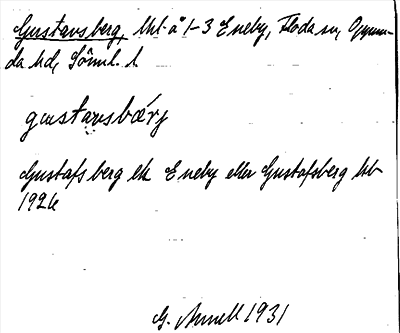 Gustavsberg, lht å 1-3 Eneby, Floda sn, Oppun-
da hd, Söml. l
gustavsbærj
Gustafsberg ek Eneby eller Gustafsberg hb
1926
G. 1931